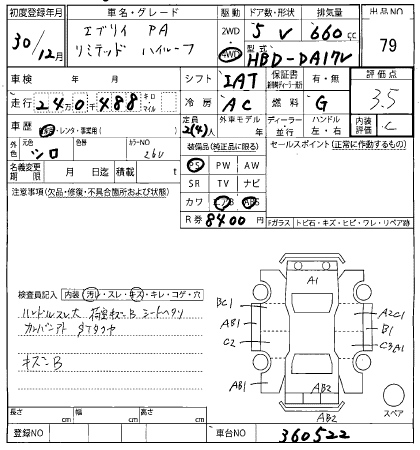 初度登録年月 車名・グレード 駆動 ドア数・形状 排気量 出品NO
30/12月 エブリイ PA リミテッド ハイルーフ 2WD 4WD 5 V 660cc 79
型式 HBD-DA17V
車検 年 月 シフト IAT 保証書 新車時ディーラー発行 有・無 評価点
走行 240千488 キロ・マイル 冷房 AC 燃料 G 3.5
車歴 自家・レンタ・事業用( ) 定員 2(4)人 外車モデル 年 ディーラー 並行 ハンドル 左・右 内装評価 C
外色 元色 シロ 色替 カラーNO 26U
装備品(純正品に限る) セールスポイント(正常に作動するもの)
名義変更期限 月 日迄 積載 t
PS PW AW
SR TV ナビ
カワ エアB ABS
R券 8400円
注意事項(欠品・修復・不具合箇所および状態)
Fガラス トビ石・キズ・ヒビ・ワレ・リペア跡
検査員記入 内装(汚れ・スレ・キズ・キレ・コゲ・穴)
ハンドルスレ大 荷室キズB シートヘタリ
キズB
A1
BC1
A2C1
AB1
B1
C2
C3A1
AB1
AB2
AB2
スペア
長さ cm 幅 cm 高さ cm
登録NO 車台NO 360522